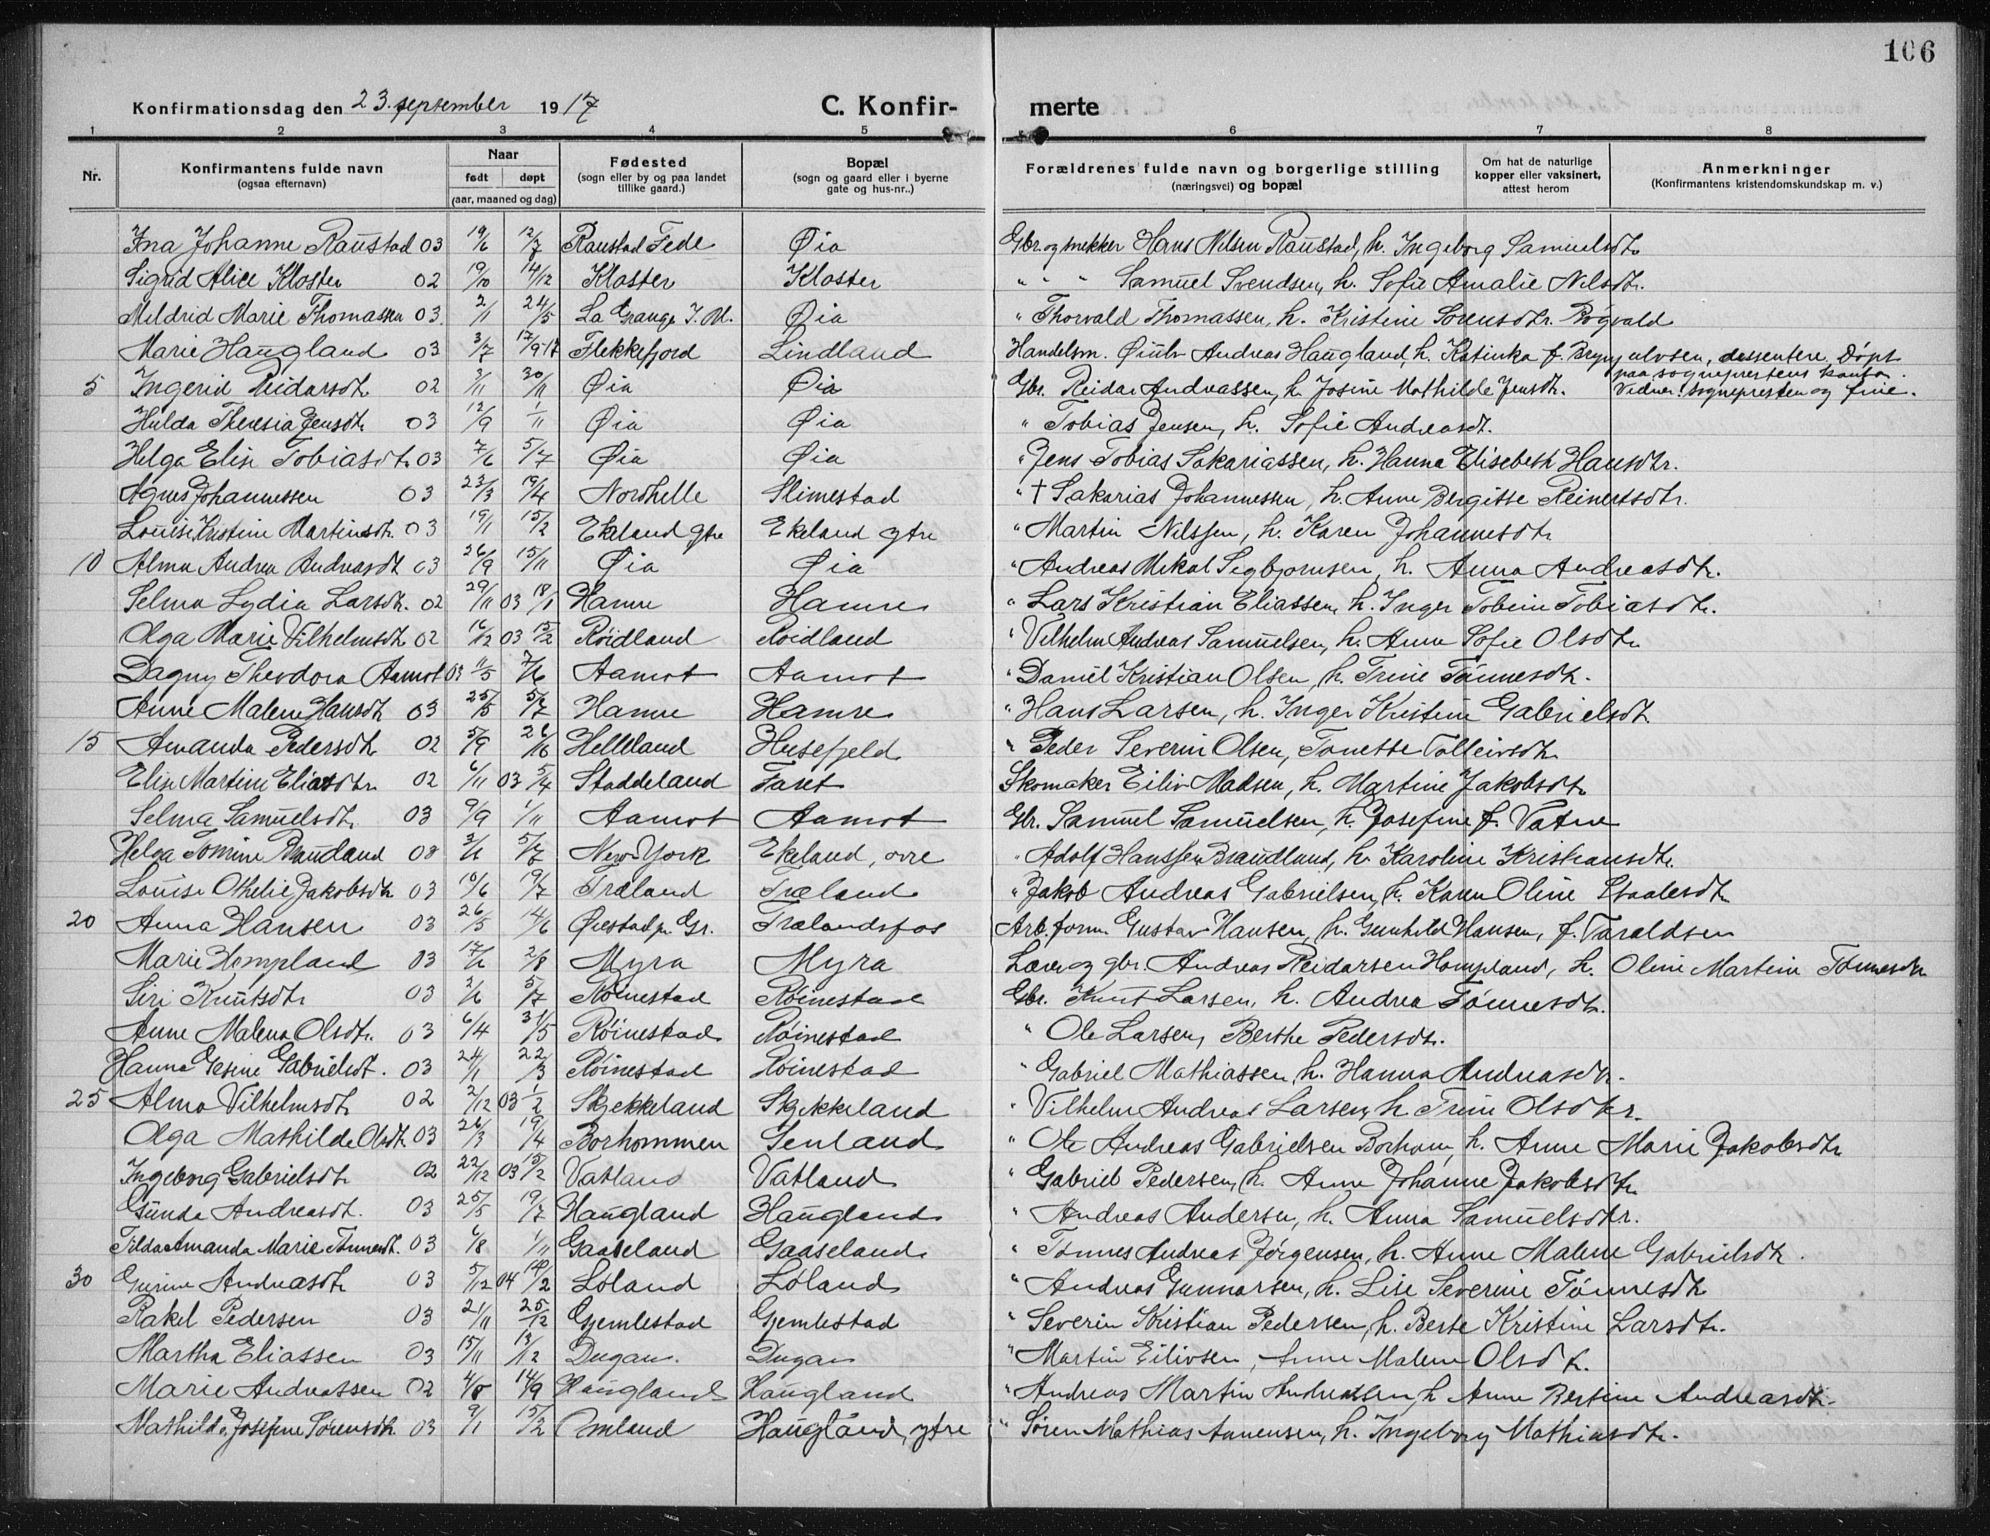 106
Konfirmationsdag den 23. september 1917 C. Konfir- merte
1 2 3 4 5 6 7 8
Nr. Konfirmantens fulde navn (ogsaa efternavn) Naar født døpt (aar, maaned og dag) Fødested (sogn eller by og paa landet tillike gaard.) Bopæl (sogn og gaard eller i byerne gate og hus-nr.) Forældrenes fulde navn og borgerlige stilling (næringsvei) og bopæl Om hat de naturlige kopper eller vaksinert, attest herom Anmerkninger (Konfirmantens kristendomskundskap m. v.)
Ina Johanne Raustad 03 19/6 12/7 Raustad Fede Øia Gbr. og snekker Hans Nilsen Raustad, h. Ingeborg Samuelsdt.
Sigrid Alice Kloster 02 19/10 14/12 Kloster Kloster " " " Samuel Svendsen, h. Sofie Amalie Nilsdt.
Mildrid Marie Thomassen 03 2/1 24/5 La Grange Øia " Thorvald Thomassen, h. Kristine Sørensdtr. Rogvald
Marie Haugland 03 3/7 17/9 17 Flekkefjord Lindland Handelsm. Andreas Haugland, h. Katinka f. Brynjulvsen, dessentere. Døpt
paa sogneprestens kontor.
5 Ingerid Reidarsdt. 02 2/11 30/11 Øia Øia Gbr. Reidar Andreassen, h. Josine Mathilde Jensdt. Vidner: sognepresten og frue.
Hulda Theresia Jensdt. 03 12/9 1/11 Øia Øia " Tobias Jensen, h. Sofie Andreasdt.
Helga Elise Tobiasdt. 03 7/6 5/7 Øia Øia " Jens Tobias Sakariassen, h. Hanna Elisebeth Hansdtr.
Agnes Johannessen 03 23/3 19/4 Nordhelle Slimestad " † Sakarias Johannessen, h. Anne Bergitte Reinertsdtr.
Louise Kristine Martinsdt. 03 19/1 15/2 Ekeland ytre Ekeland ytre " Martin Nilssen, h. Karen Johannesdt.
10 Alma Andrea Andreasdt. 03 26/9 15/11 Øia Øia " Andreas Mikal Sigbjørnsen, h. Anna Andreasdt.
Selma Lydia Larsdt. 02 29/11 03 18/1 Hamre Hamre " Lars Kristian Eliassen, h. Inger Tobine Tobiasdt.
Olga Marie Vilhelmsdt. 02 16/12 03 15/2 Røidland Røidland " Vilhelm Andreas Samuelsen, h. Anne Sofie Olsdt.
Dagny Theodora Aamot 03 11/5 7/6 Aamot Aamot " Daniel Kristian Olsen, h. Trine Tønnesdt.
Anne Malene Hansdt. 03 25/5 5/7 Hamre Hamre " Hans Larsen, h. Inger Kristine Gabrielsdt.
15 Amanda Pedersdt. 02 5/9 26/10 Helleland Husefjeld " Peder Severin Olsen, Tonette Tolleivsdt.
Elise Martine Eliasdtr. 02 6/11 03 5/4 Staddeland Faret Skomaker Eiliv Madsen, h. Martine Jakobsdt.
Selma Samuelsdt. 03 9/9 1/11 Aamot Aamot Gbr. Samuel Samuelsen, h. Josefine f. Vatne
Helga Tomine Braudland 03 5/7 New York Ekeland, øvre " Adolf Hanssen Braudland, h. Karoline Kristiansdt.
Louise Othelie Jakobsdt. 03 10/6 19/7 Træland Træland " Jakob Andreas Gabrielsen, h. Karen Oline Staalesdt.
20 Anna Hansen 03 26/5 14/6 Øiestad pr. Gr. Trælandsfos Arb. form. Gustav Hansen, h. Gunhild Hansen, f. Taraldsen
Marie Hompland 03 17/6 2/8 Myra Myra Lærer og gbr. Andreas Reidarsen Hompland, h. Oline Martine Tønnesdt.
Siri Knutsdtr. 03 2/6 5/7 Røinestad Røinestad Gbr. Knut Larsen, h. Andrea Tønnesdt.
Anne Malena Olsdt. 03 6/4 31/5 Røinestad Røinestad " Ole Larsen, Berthe Pedersdt.
Hanna Gesine Gabrielsdt. 03 24/1 22/3 Røinestad Røinestad " Gabriel Mathiassen, h. Hanna Andreasdt.
25 Alma Vilhelmsdt. 02 2/12 03 1/2 Skjekkeland Skjekkeland " Vilhelm Andreas Larsen, h. Trine Olsdtr.
Olga Mathilde Olsdt. 03 26/3 19/4 Borhommen Senland " Ole Andreas Gabrielsen Borhom, h. Anne Marie Jakobsdt.
Ingeborg Gabrielsdt. 02 22/12 03 15/2 Vatland Vatland " Gabriel Pedersen, h. Anne Johanne Jakobsdt.
Gunda Andreasdt. 03 25/5 19/7 Haugland Haugland " Andreas Andersen, h. Anna Samuelsdtr.
Tilda Amanda Marie Tønnesdt. 03 6/8 1/11 Gaaseland Gaaseland " Tønnes Andreas Jørgensen, h. Anne Malene Gabrielsdt.
30 Gurine Andreasdt. 03 5/12 04 14/2 Løland Løland " Andreas Gunnarsen, h. Lise Severine Tønnesdt.
Rakel Pedersen 03 21/11 25/12 Gjemlestad Gjemlestad " Severin Kristian Pedersen, h. Berte Kristine Larsdt.
Martha Eliassen 03 15/11 13/12 Dugan. Dugan " Martin Eilivsen, Anne Malene Olsdt.
Marie Andreassen 02 4/8 14/9 Haugland Haugland " Andreas Martin Andreassen, h. Anne Bertine Andreasdt.
Mathilde Josefine Sørensdt. 03 9/1 15/2 Omland Haugland, ytre " Søren Mathias Aanensen, h. Ingeborg Mathiasdt.